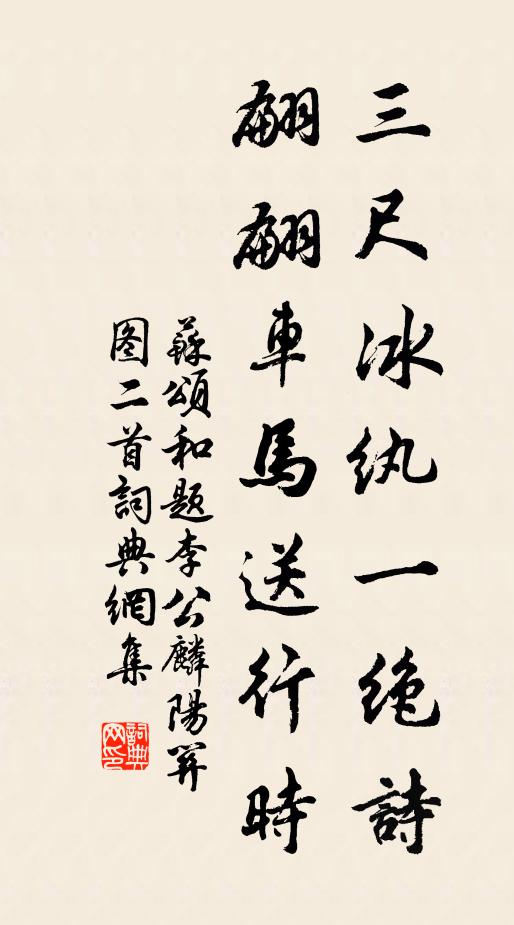 三尺冰紈一絶詩
翩翩車馬送行時
蘇頌和題李公麟陽關
图二首詞典網集
詞典网印